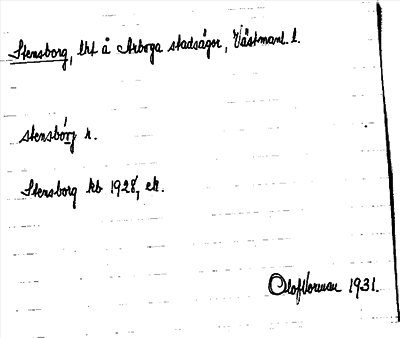 Stensborg, lht å Arboga stadsägor, Västmanl. l.
stensbórj r.
Stensborg kb 1928, ek.
Olof 1931.